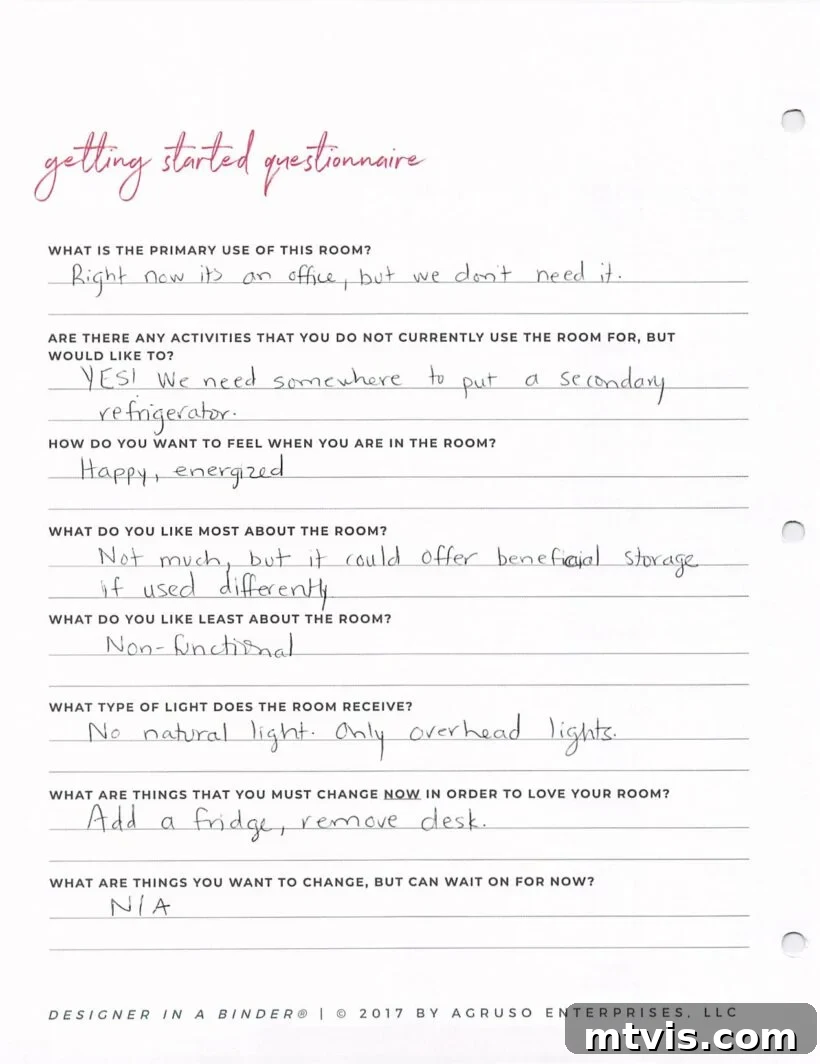 getting started questionnaire
WHAT IS THE PRIMARY USE OF THIS ROOM?
Right now its an office, but we don't need it.
ARE THERE ANY ACTIVITIES THAT YOU DO NOT CURRENTLY USE THE ROOM FOR, BUT
WOULD LIKE TO?
YES! We need somewhere to put a secondary
refrigerator.
HOW DO YOU WANT TO FEEL WHEN YOU ARE IN THE ROOM?
Happy, energized
WHAT DO YOU LIKE MOST ABOUT THE ROOM?
Not much, but it could offer beneficial storage
if used differently
WHAT DO YOU LIKE LEAST ABOUT THE ROOM?
Non-functional
WHAT TYPE OF LIGHT DOES THE ROOM RECEIVE?
No natural light. Only overhead lights.
WHAT ARE THINGS THAT YOU MUST CHANGE NOW IN ORDER TO LOVE YOUR ROOM?
Add a fridge, remove desk.
WHAT ARE THINGS YOU WANT TO CHANGE, BUT CAN WAIT ON FOR NOW?
N/A
DESIGNER IN A BINDER® | © 2017 BY AGRUSO ENTERPRISES, LLC
mtvis.com